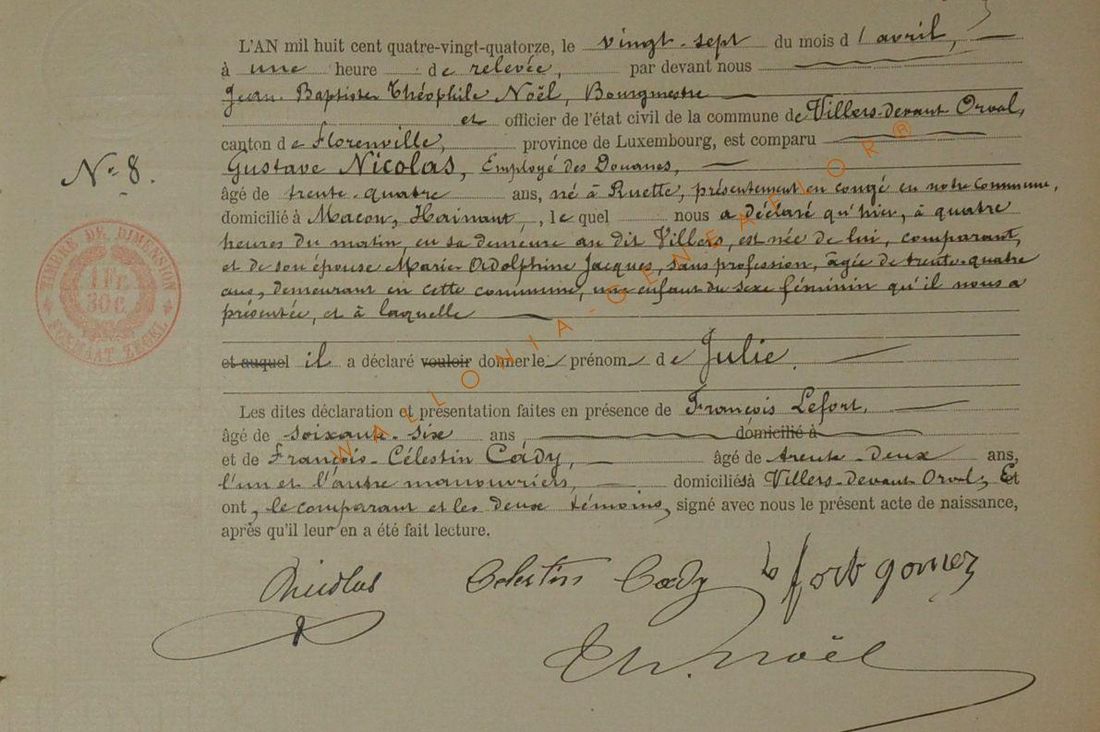 L'AN mil huit cent quatre-vingt-quatorze, le vingt-sept du mois d'avril,
à une heure de relevée, par devant nous
Jean Baptiste Théophile Noël, Bourgmestre
et officier de l'état civil de la commune de Villers-devant Orval,
canton de Florenville, province de Luxembourg, est comparu
Gustave Nicolas, Employé des Douanes,
N° 8.
âgé de trente-quatre ans, né à Ruette, présentement en congé en notre commune,
domicilié à Macon, Hainaut, lequel nous a déclaré qu'hier, à quatre
heures du matin, en sa demeure au dit Villers, est née de lui, comparant,
et de son épouse Marie Adolphine Jacques, sans profession, âgée de trente-quatre
ans, demeurant en cette commune, une enfant du sexe féminin qu'il nous a
présentée, et à laquelle
et auquel il a déclaré vouloir donner le prénom de Julie.
Les dites déclaration et présentation faites en présence de François Lefort,
âgé de soixante-six ans, domicilié à
et de François-Célestin Cady, âgé de trente-deux ans,
l'un et l'autre manouvriers, domiciliés à Villers-devant Orval, Et
ont, le comparant et les deux témoins, signé avec nous le présent acte de naissance,
après qu'il leur en a été fait lecture.
Nicolas Celestin Cady Lefort gomez
Th. Noël
TIMBRE DE DIMENSION
1 FR.
30 C.
FORMAAT ZEGEL
WALLONIA-GENEAFLOR®